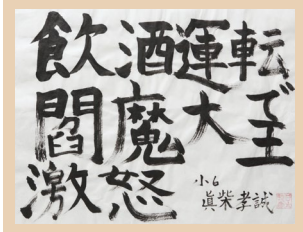 飲酒運転で
閻魔大王
激怒
小6
眞柴孝誠